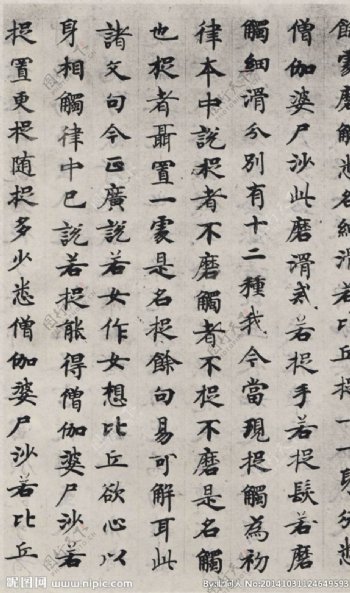 餘處磨觸悉名細滑若捉一一身分悉
僧伽婆尸沙此磨滑戒若捉手若捉髮若磨
觸細滑分別有十二種我今當現捉觸為初
律本中說捉者不磨觸者不捉不磨是名觸
也捉者聶置一處是名捉餘句易可解耳此
諸文句今正廣說若女作女想比丘欲心以
身相觸律中已說若捉能得僧伽婆尸沙若
捉置更捉随捉多少悉僧伽婆尸沙若比丘
昵图网 www.nipic.com
No:20141031124649593